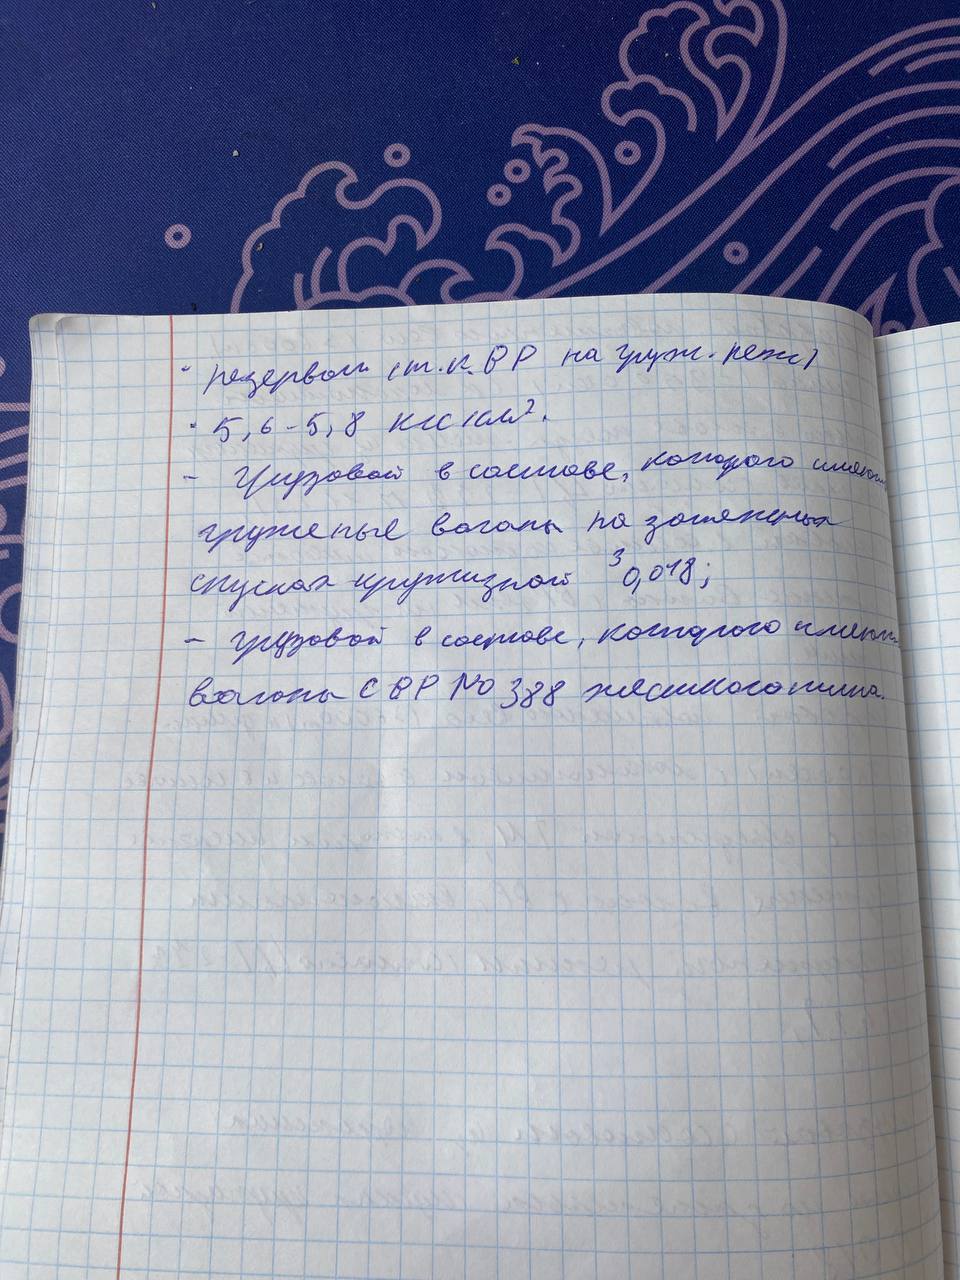 · резервом (т.к. ВР на груж. реж)
· 5,6-5,8 кгс/см².
- Грузовой в составе, которого имеют
груженые вагоны на затяжных
спусках крутизной 0,018;
- грузовой в составе, которого имеют
вагоны с ВР №388 жесткого типа.